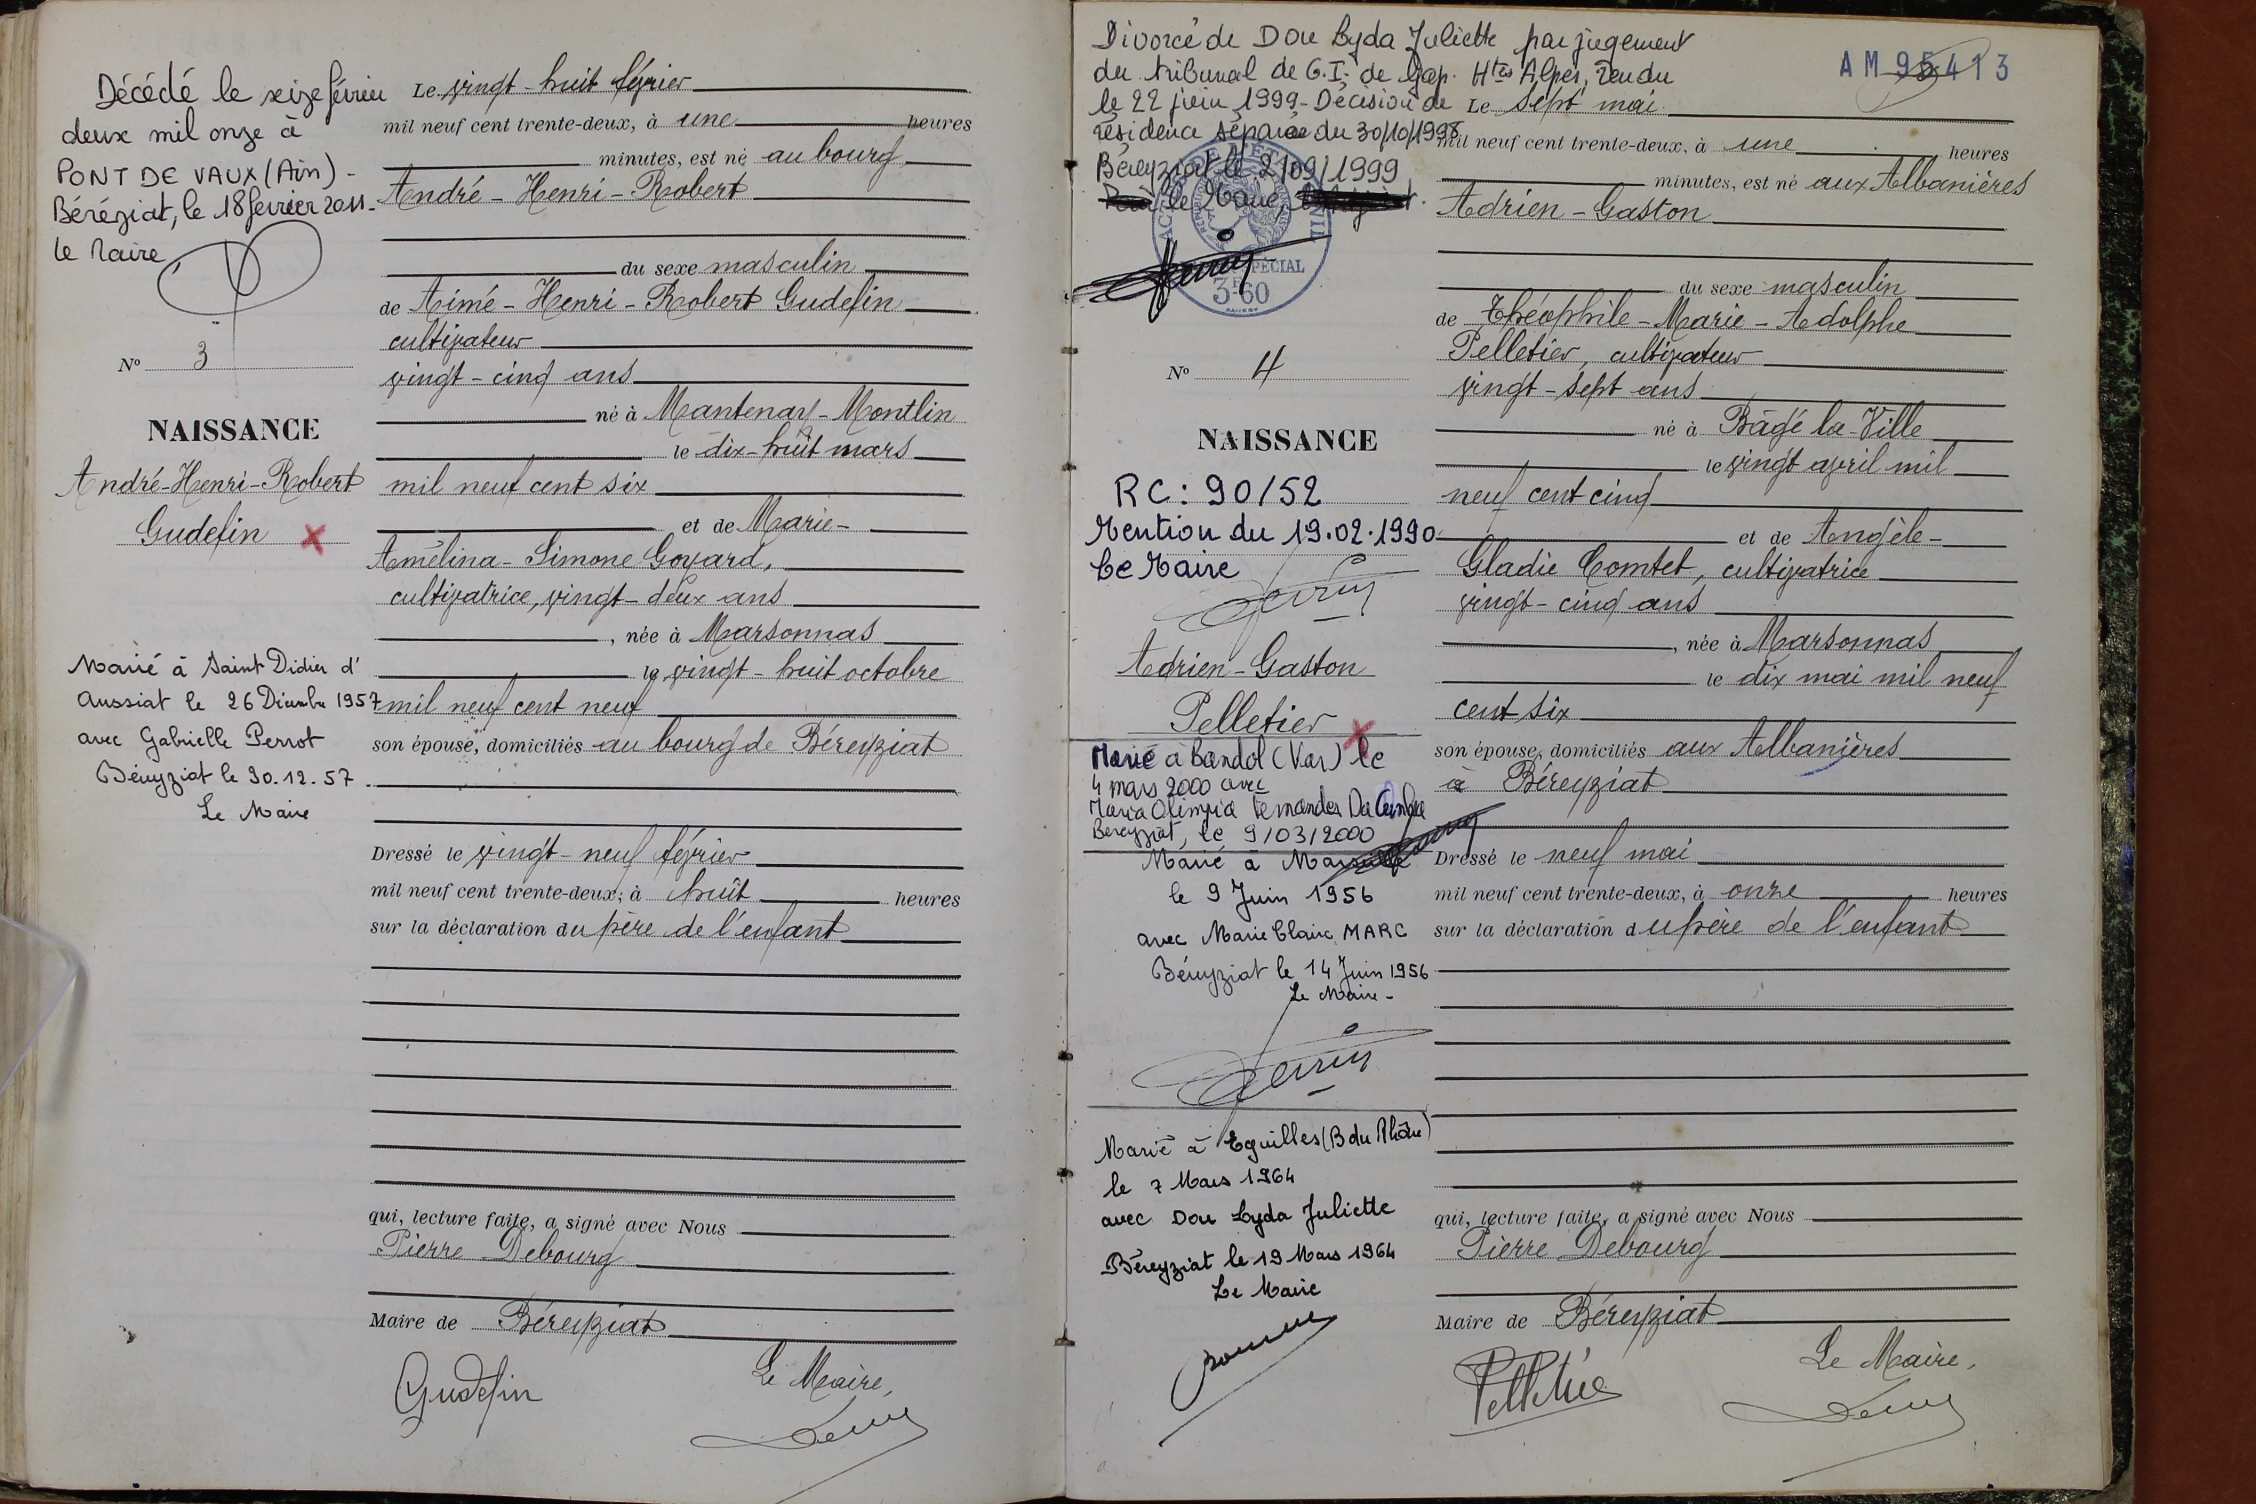 Décédé le seize février
deux mil onze à
PONT DE VAUX (Ain) -
Béréziat, le 18 février 2011-
le Maire
N° 3
NAISSANCE
André-Henri-Robert
Gudefin
Marié à Saint Didier d'
Aussiat le 26 Décembre 1957
avec Gabrielle Perrot
Béreyziat le 30.12.57
Le Maire
Le vingt-huit février
mil neuf cent trente-deux, à une heures
minutes, est né au bourg
André-Henri-Robert
du sexe masculin
de Aimé-Henri-Robert Gudefin
cultivateur
vingt-cinq ans
né à Mantenay-Montlin
le dix-huit mars
mil neuf cent six
et de Marie-
Amélina-Simone Goyard,
cultivatrice, vingt-deux ans
, née à Marsonnas
le vingt-huit octobre
mil neuf cent neuf
son épouse, domiciliés au bourg de Béreyziat
Dressé le vingt-neuf février
mil neuf cent trente-deux, à huit heures
sur la déclaration du père de l'enfant
qui, lecture faite, a signé avec Nous
Pierre Debourg
Maire de Béreyziat
Gudefin
Le Maire,
Divorcé de Dou Lyda Juliette par jugement
du tribunal de G.I. de Gap. Htes Alpes, rendu
le 22 juin 1999 - Décision de
résidence séparée du 30/10/1998
Béreyziat le 2/09/1999
le Maire,
SPÉCIAL
3F60
N° 4
NAISSANCE
RC: 90/52
Mention du 19.02.1990
Le Maire
Adrien-Gaston
Pelletier
Marié à Bandol (Var) le
4 mars 2000 avec
Maria Olimpia Fernandes Da Cunha
Bereyziat, le 9/03/2000
Marié à
le 9 Juin 1956
avec Marie Claire MARC
Béreyziat le 14 Juin 1956
Le Maire -
Marié à Eguilles (B du Rhône)
le 7 Mars 1964
avec Dou Lyda Juliette
Béreyziat le 19 Mars 1964
Le Maire
AM 95413
Le sept mai
mil neuf cent trente-deux, à une heures
minutes, est né aux Albanières
Adrien-Gaston
du sexe masculin
de Théophile-Marie-Adolphe
Pelletier, cultivateur
vingt-sept ans
né à Bâgé la-Ville
le vingt avril mil
neuf cent cinq
et de Angèle-
Gladie Comtet, cultivatrice
vingt-cinq ans
, née à Marsonnas
le dix mai mil neuf
cent six
son épouse, domiciliés aux Albanières
à Béreyziat
Dressé le neuf mai
mil neuf cent trente-deux, à onze heures
sur la déclaration du père de l'enfant
qui, lecture faite, a signé avec Nous
Pierre Debourg
Maire de Béreyziat
Pelletier
Le Maire,